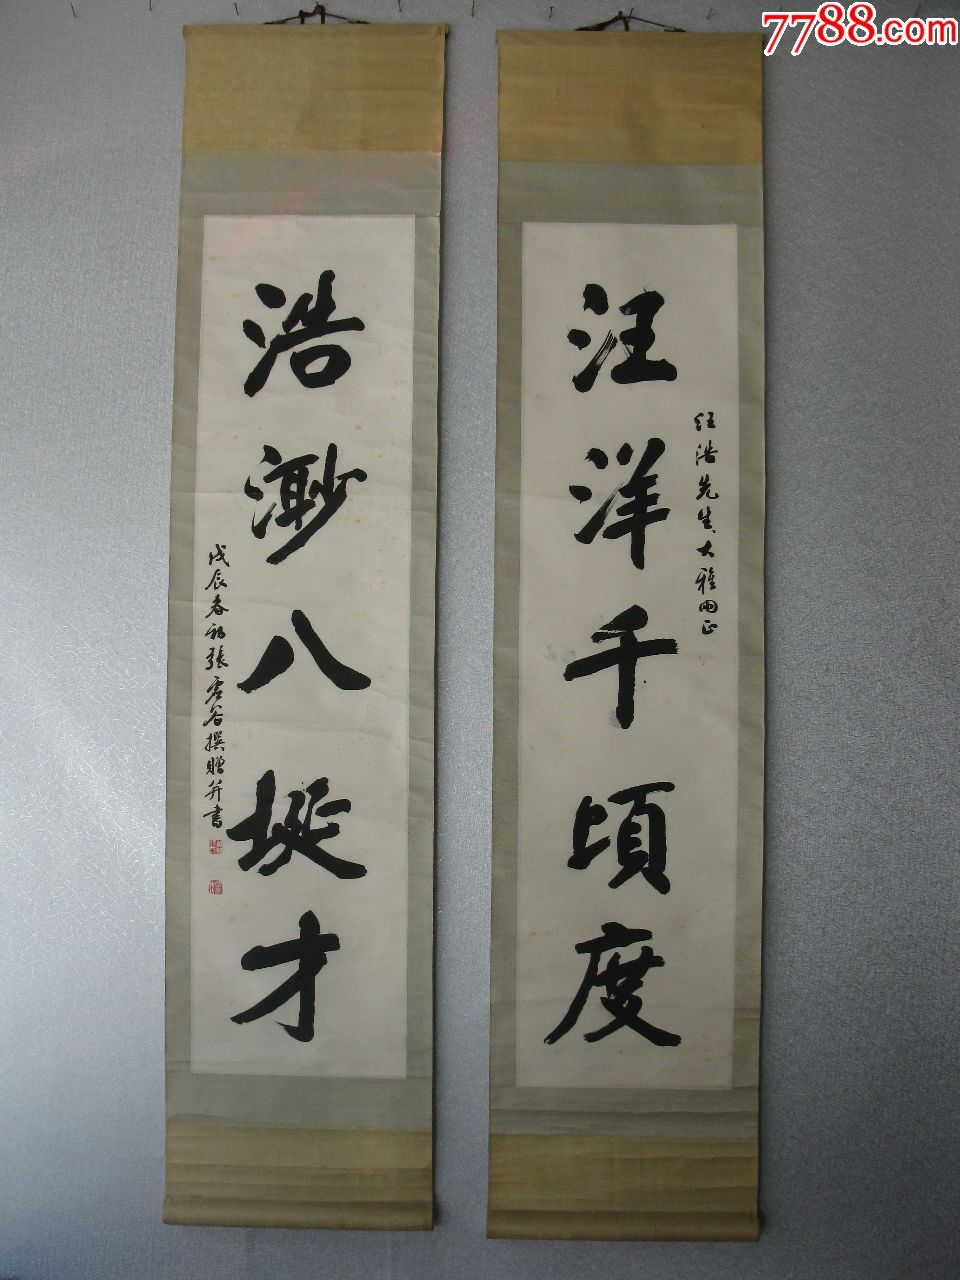 7788.com
汪洋千頃度
汪浩先生大雅兩正
浩渺八埏才
戊辰春初張虛谷撰贈并書